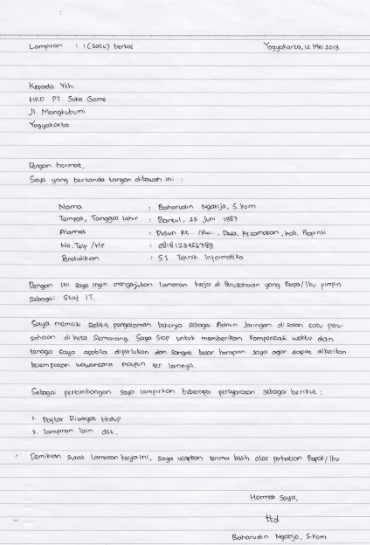 Lampiran : 1 (satu) berkas Yogyakarta, 12 Mei 2013
Kepada Yth.
HRD PT. Suka Game
Jl. Mangkubumi
Yogyakarta
Dengan hormat,
Saya yang bertanda tangan dibawah ini :
Nama : Baharudin Ngatijo, S.Kom
Tempat, Tanggal lahir : Bantul, 25 Juni 1987
Alamat : Dusun Rt... /Rw.., Desa, Kecamatan, Kab, Propinsi
No. Telp /HP : 0818123456789
Pendidikan : S1 Teknik Informatika
Dengan ini saya ingin mengajukan lamaran kerja di Perusahaan yang Bapak/Ibu pimpin
sebagai Staf IT.
Saya memiliki sedikit pengalaman bekerja sebagai Admin Jaringan di salah satu peru-
sahaan di kota Semarang. Saya siap untuk memberikan kompensasi waktu dan
tenaga saya apabila diperlukan dan sangat besar harapan saya agar dapat diberikan
kesempatan wawancara maupun tes lainnya.
Sebagai pertimbangan saya lampirkan beberapa persyaratan sebagai berikut :
1. Daftar Riwayat Hidup
2. lampiran lain dst.
Demikian surat lamaran kerja ini, saya ucapkan terima kasih atas perhatian Bapak/Ibu
Hormat Saya,
ttd
Baharudin Ngatijo, S.Kom